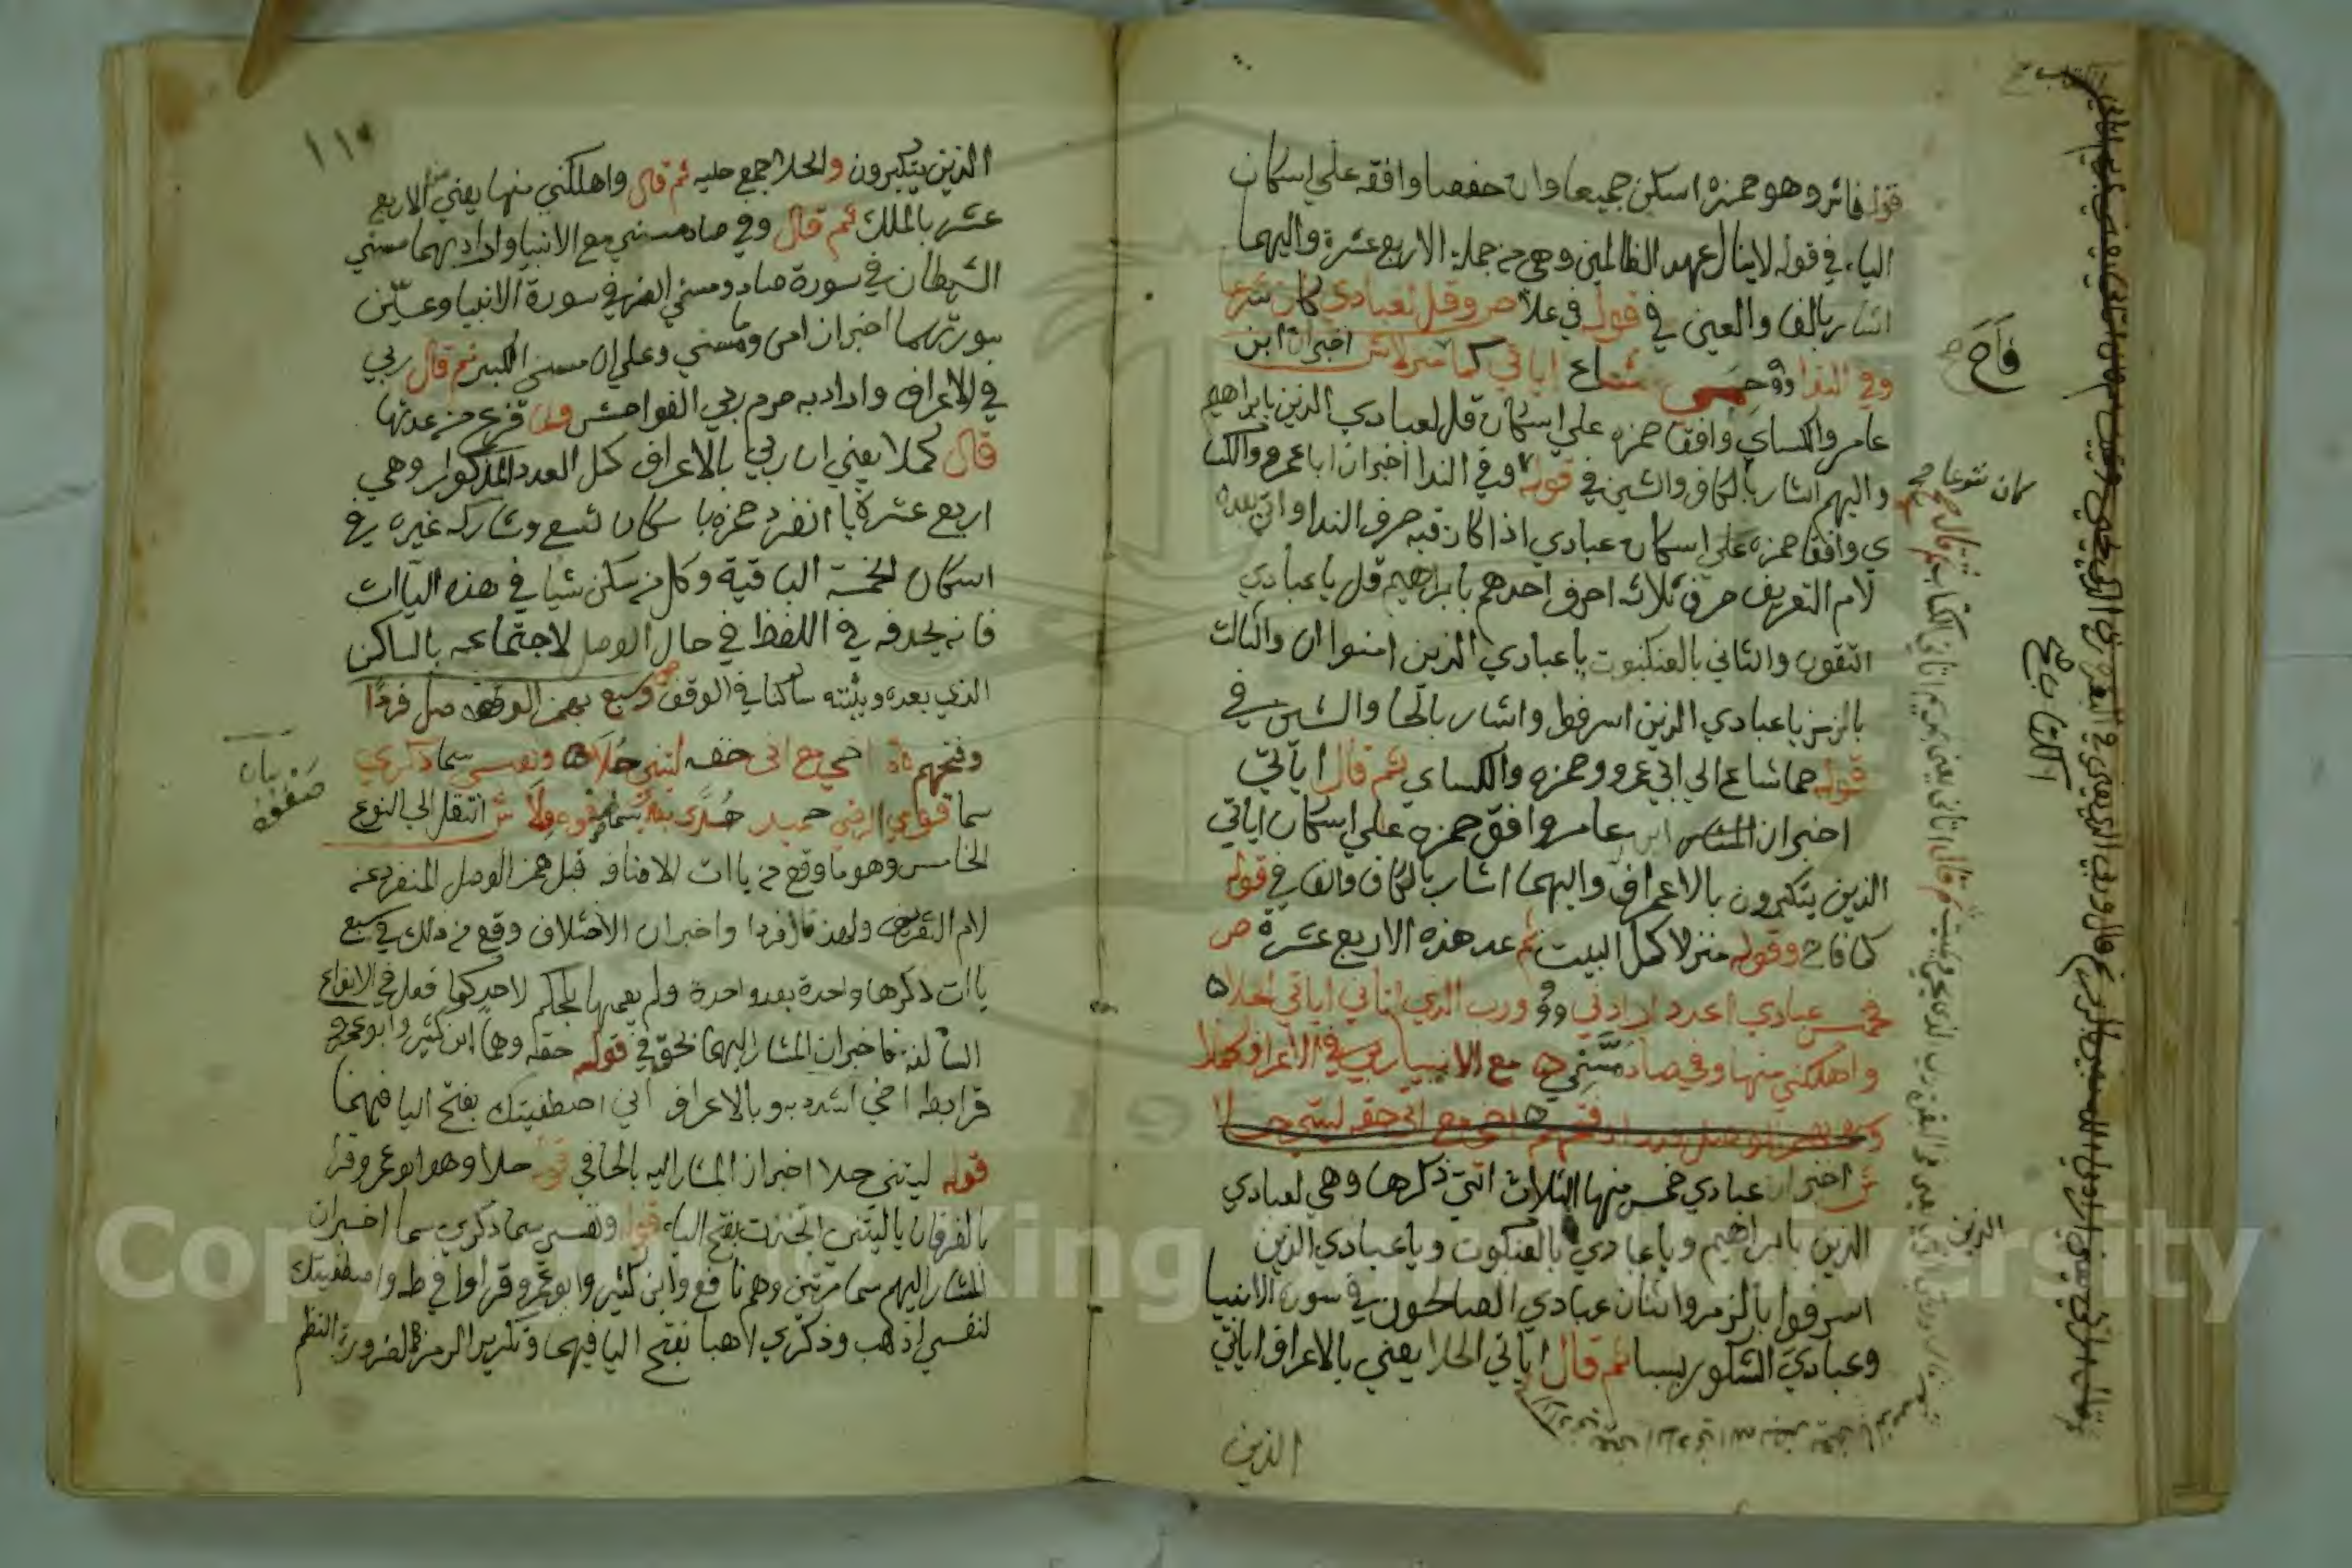 قوله فائز وهو حمزة اسكن جميعها وان حفصا وافقه علي اسكان
الياء في قوله لاينال عهد الظالمين وهي من جملة الاربع عشرة واليهما
اشار بالفا والعين في قوله في علا ص وقل لعبادي كان شرعا
وفي الندا حمى شاع اياتي كما منزلا ش اخبر ان ابن
عامر والكساي وافقا حمزه علي اسكان قل لعبادي الذين بابراهيم
واليهم اشار بالكاف والشين في قوله وفي الندا اخبر ان ابا عمرو والكسا
ي وافقا حمزه علي اسكان عبادي اذا كان قبه حرف الندا واتي بعده
لام التعريف حرفي ثلاثه احرف احدهم بابراهيم قل يا عبادي
اتقون والثاني بالعنكبوت يا عبادي الذين امنوا ان والثالث
بالزمر يا عبادي الذين اسرفوا واشار بالحا والشين في
قوله حما شاع الي ابي عمرو وحمزه والكساي ثم قال اياتي
اخبر ان المشار ابن عامر وافق حمزه علي اسكان اياتي
الذين يتكبرون بالاعراف واليهما اشار بالكاف والفا في قوله
كما فاح وقوله منزلا كمل البيت ثم عد هذه الاربع عشرة ص
فخمس عبادي اعدد ارادني وربي الذي اتاني اياتي الحلا
واهلكني منها وفي صاد مسني مع الانبيا ربي في الاعراف كملا
ش اخبر ان عبادي خمس منها الثلاث التي ذكرها وهي لعبادي
الذين بابراهيم ويا عبادي بالعنكبوت ويا عبادي الذين
اسرفوا بالزمر واثنان عبادي الصالحون في سورة الانبيا
وعبادي الشكور بسبا ثم قال اياتي الحلا يعني بالاعراف اياتي
الذين
فاح
كان شرعا صح
الكتاب صح
الذين
١١٥
الذين يتكبرون والحلا جمع حليه ثم قال واهلكني منها يعني من الاربع
عشر بالملك ثم قال وفي صاد مسني مع الانبيا واراد بهما مسني
الشيطان في سورة صاد ومسني الضر في سورة الانبيا وعيّن
سورتهما اخبر ان امى وما مسني وعلي ان مسني الكبر ثم قال ربي
في الاعراف واراد به حرم ربي الفواحش ولما فرغ من عدتها
قال كملا يعني ان ربي بالاعراف كمل العدد المذكور وهي
اربع عشرة يا انفرد حمزه با سكان تسع وشاركه غيره في
اسكان الخمسة الباقية وكل من سكن شيا في هذه اليآات
فانه يحدفه في اللفظ في حال الوصل لاجتماعه بالساكن
الذي بعده ويثبته ساكنا في الوقف ص وسبع بهمز الوصل فردا
وفتحهم اخي مع اني حقه ليتني حلا ونفسي سما ذكري
سما قومي الرضي حميد هدى بعدي سما صفوه ولا ش انتقل الي النوع
الخامس وهو ما وقع من يا ات الاضافه قبل همز الوصل المنفرد عنه
لام التعريف ولهذ قال فردا واخبر ان الاختلاف وقع من ذلك في سبع
يا ات ذكرها واحدة بعد واحدة ولم يعمها بحكم لاحد كما فعل في الانواع
السالفة فاخبر ان المشار اليهما بحق في قوله حقه وهما ابن كثير وابوعمرو
قرا بطه اخي اشدد به وبالاعراف اني اصطفيتك بفتح اليا فيهما
قوله ليتني حلا اخبر ان المشار اليه بالحا في قوله حلا وهو ابو عمرو قرا
بالفرقان ياليتني اتخذت بفتح الياء قوله ونفسي سما ذكري سما اخبر ان
المشار اليهم سما مرتين وهم نافع وابن كثير وابوعمرو قراوا في طه واصطنعتك
لنفسي اذهب وذكري اذهبا بفتح اليا فيهما وتكرير الرمز لضرورة النظم
بيان
صفوه
Copyright © King Saud University